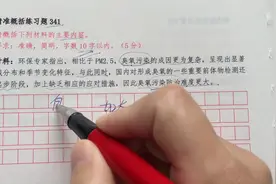 精准概括练习题 341
概括下列材料的主要内容。
求：准确，简明，字数10字以内。（5分）
料：环保专家指出，相比于PM2.5，臭氧污染的成因更为复杂，呈现出显著
域分布和季节变化特征，与此同时，国内对形成臭氧的一些重要前体物检测还
步阶段，加上缺乏相应的应对措施，因此臭氧污染防治难度更大。